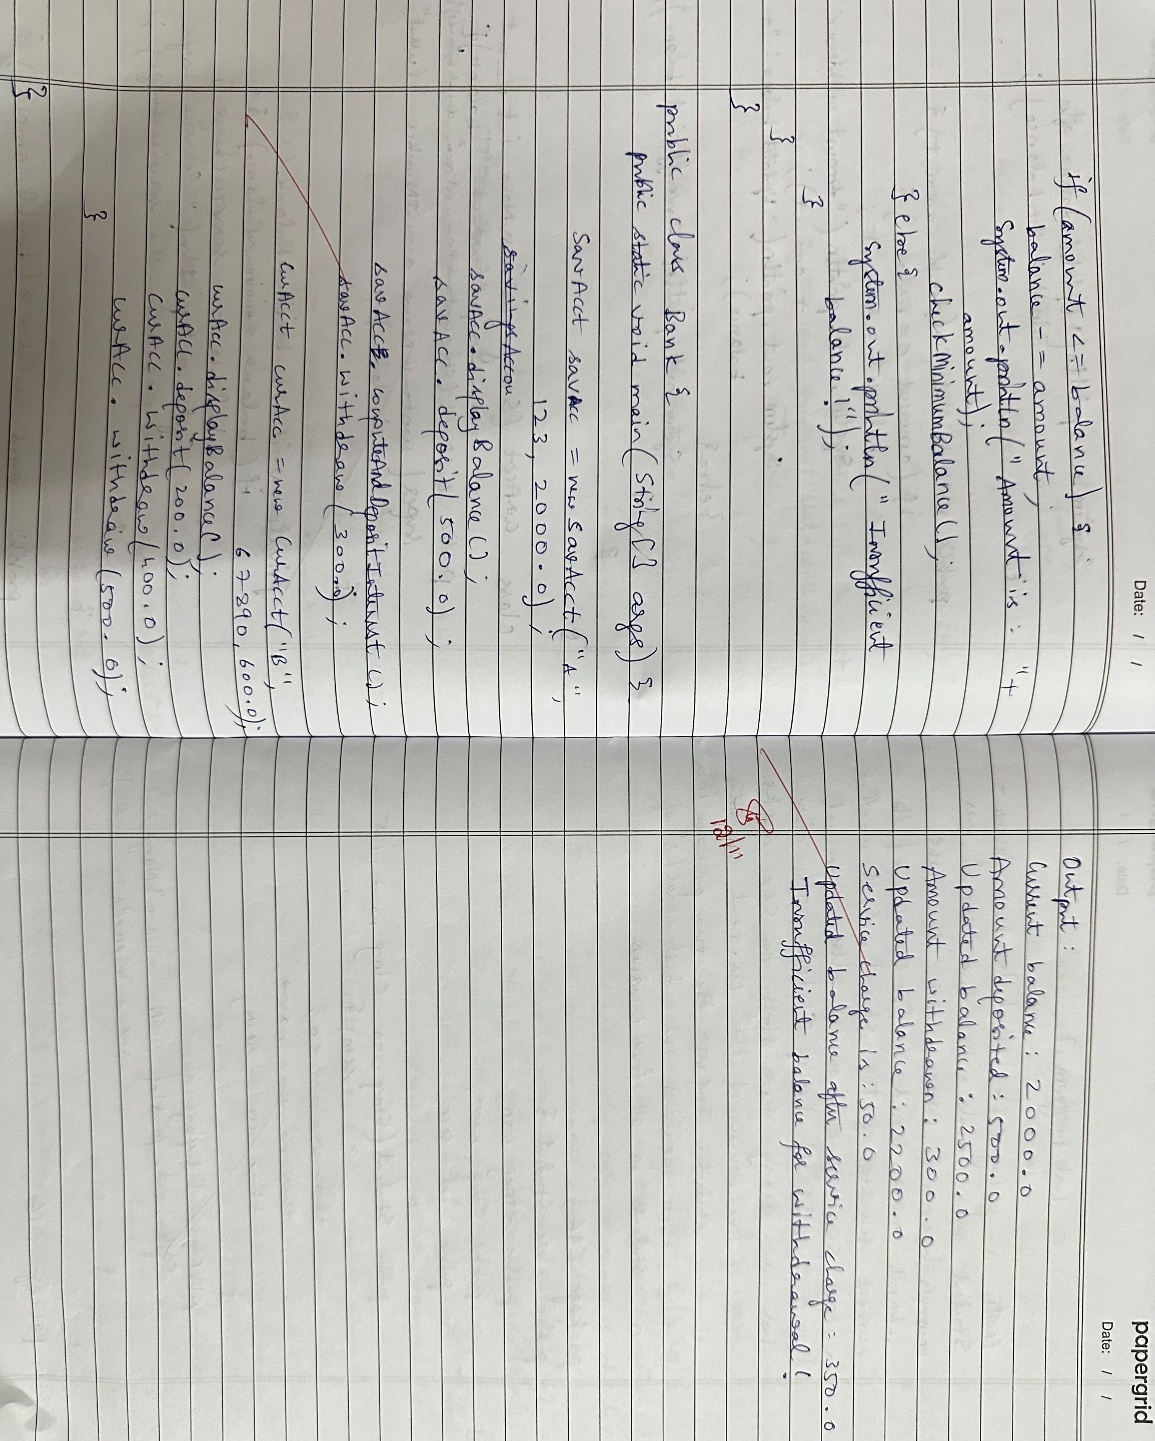 Date: / /
if (amount <= balance) {
balance -= amount;
System.out.println("Amount is : "+
amount);
checkMinimumBalance();
} else {
System.out.println("Insufficient
balance!");
}
}
}
public class Bank {
public static void main(String[] args) {
SavAcct savAcc = new SavAcct("A",
123, 2000.0);
savAcc.displayBalance();
savAcc.deposit(500.0);
savAcc.computeAndDepositInterest();
savAcc.withdraw(300.0);
CurAcct curAcc = new CurAcct("B",
67890, 600.0);
curAcc.displayBalance();
curAcc.deposit(200.0);
curAcc.withdraw(400.0);
curAcc.withdraw(500.0);
}
}
papergrid
Date: / /
Output:
Current balance: 2000.0
Amount deposited: 500.0
Updated balance: 2500.0
Amount withdrawn: 300.0
Updated balance: 2200.0
Service charge is: 50.0
Updated balance after service charge: 350.0
Insufficient balance for withdrawal!
12/11